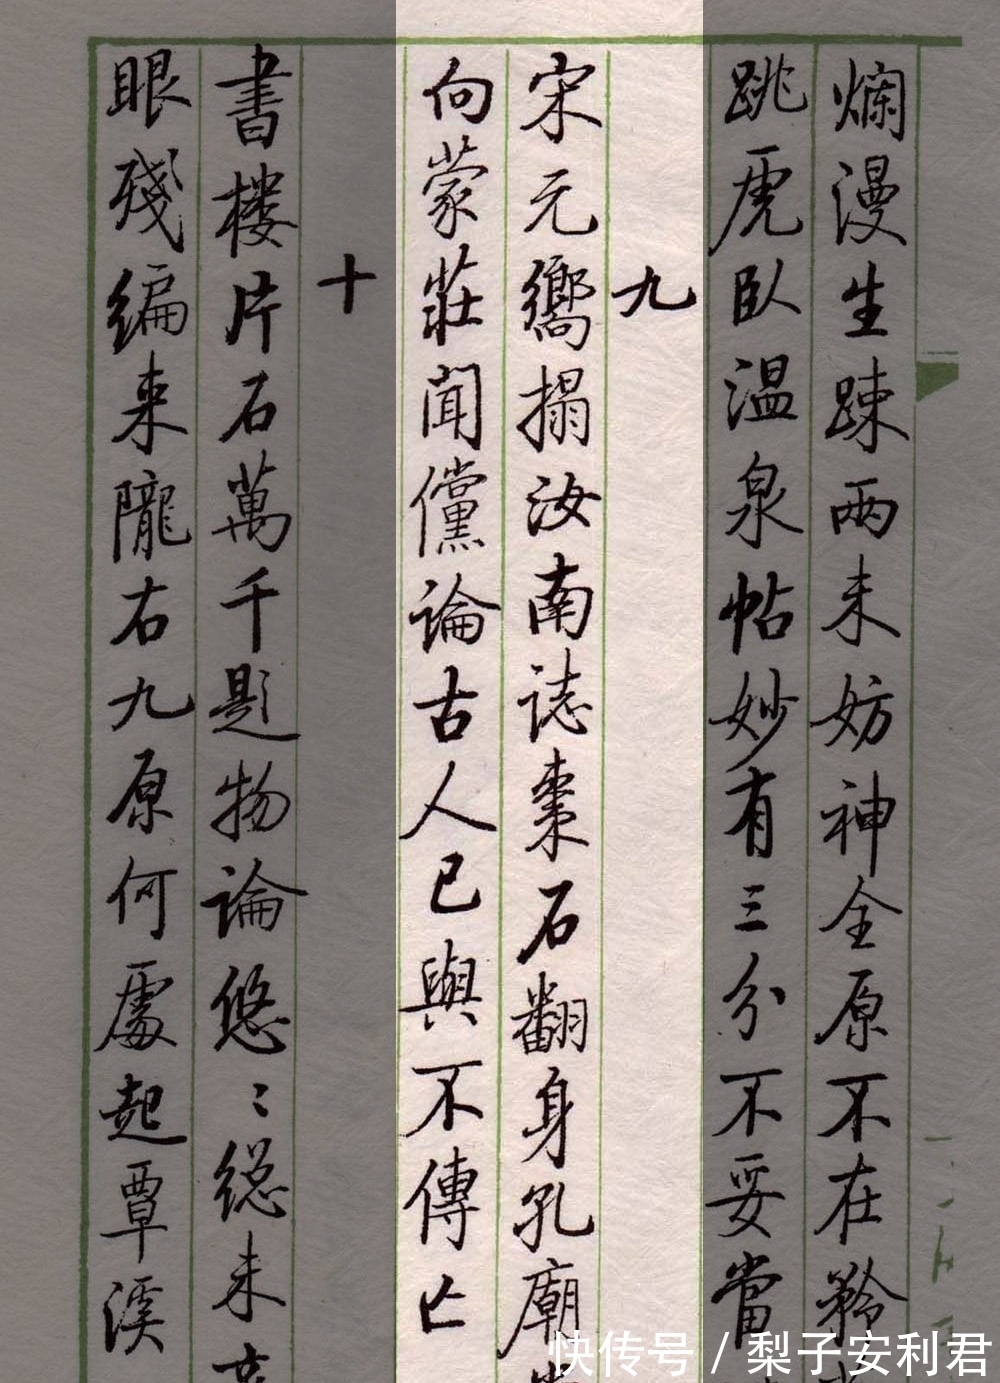 爛漫生踈兩未妨神全原不在
跳虎臥温泉帖妙有三分不妥當
九
宋元嚮搨汝南誌棗石翻身孔廟
向蒙莊聞儻論古人已與不傳亡
十
書楼片石萬千題物論悠〻總未
眼殘編来隴右九原何處起覃溪
快传号 / 梨子安利君